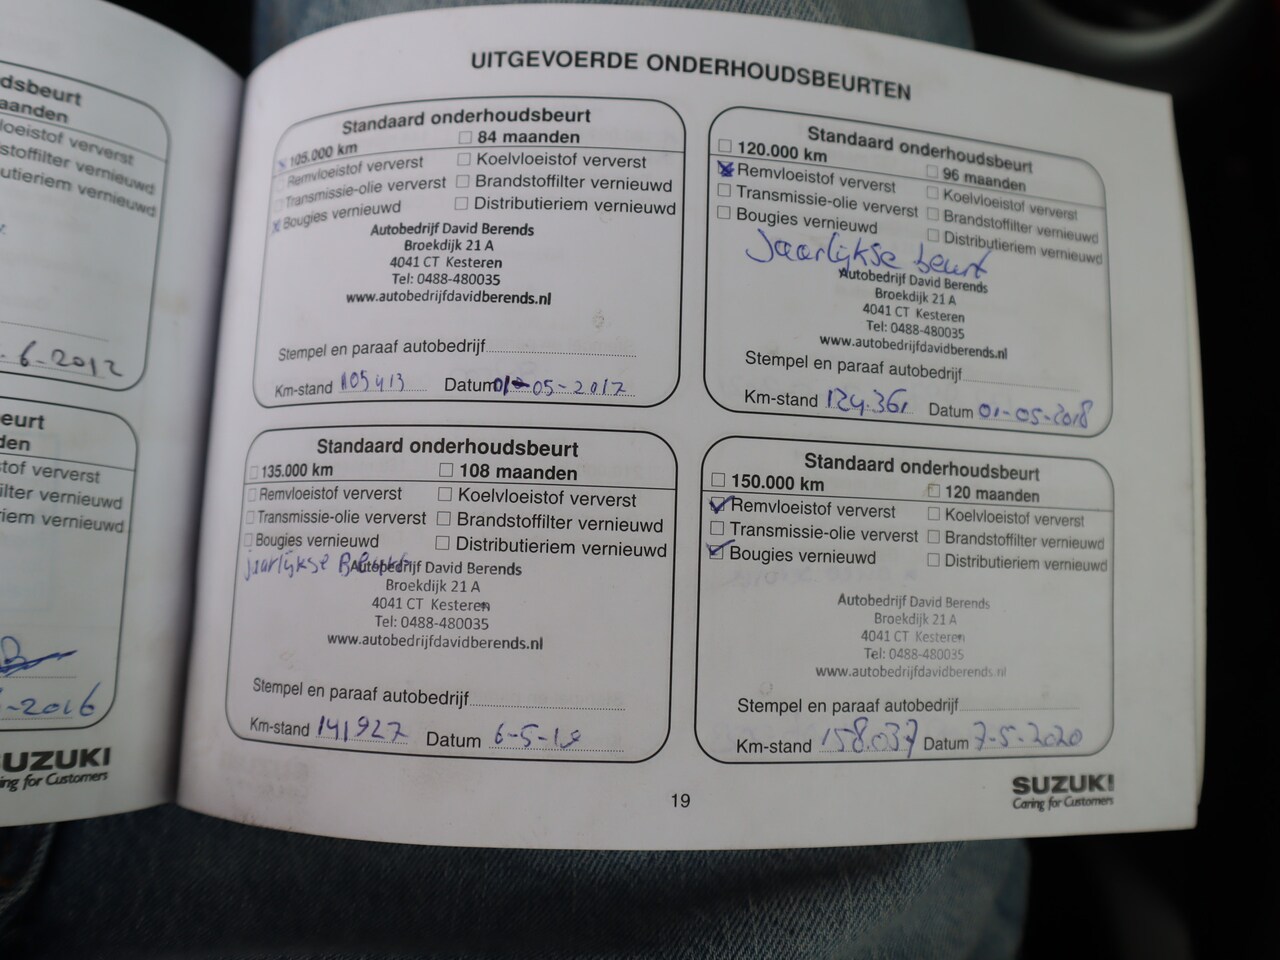 dsbeurt
aanden
loeistof ververst
stoffilter vernieuwd
utieriem vernieuwd
6-2012
eurt
den
stof ververst
ilter vernieuwd
riem vernieuwd
-2016
UZUKI
ing for Customers
UITGEVOERDE ONDERHOUDSBEURTEN
Standaard onderhoudsbeurt
105.000 km 84 maanden
Remvloeistof ververst Koelvloeistof ververst
Transmissie-olie ververst Brandstoffilter vernieuwd
Bougies vernieuwd Distributieriem vernieuwd
Autobedrijf David Berends
Broekdijk 21 A
4041 CT Kesteren
Tel: 0488-480035
www.autobedrijfdavidberends.nl
Stempel en paraaf autobedrijf
Km-stand 105413 Datum 01-05-2017
Standaard onderhoudsbeurt
120.000 km 96 maanden
Remvloeistof ververst Koelvloeistof ververst
Transmissie-olie ververst Brandstoffilter vernieuwd
Bougies vernieuwd Distributieriem vernieuwd
Jaarlijkse beurt
Autobedrijf David Berends
Broekdijk 21 A
4041 CT Kesteren
Tel: 0488-480035
www.autobedrijfdavidberends.nl
Stempel en paraaf autobedrijf
Km-stand 124.361 Datum 01-05-2018
Standaard onderhoudsbeurt
135.000 km 108 maanden
Remvloeistof ververst Koelvloeistof ververst
Transmissie-olie ververst Brandstoffilter vernieuwd
Bougies vernieuwd Distributieriem vernieuwd
jaarlijkse
Autobedrijf David Berends
Broekdijk 21 A
4041 CT Kesteren
Tel: 0488-480035
www.autobedrijfdavidberends.nl
Stempel en paraaf autobedrijf
Km-stand 141927 Datum 6-5-19
Standaard onderhoudsbeurt
150.000 km 120 maanden
Remvloeistof ververst Koelvloeistof ververst
Transmissie-olie ververst Brandstoffilter vernieuwd
Bougies vernieuwd Distributieriem vernieuwd
Autobedrijf David Berends
Broekdijk 21 A
4041 CT Kesteren
Tel: 0488-480035
www.autobedrijfdavidberends.nl
Stempel en paraaf autobedrijf
Km-stand 158.037 Datum 7-5-2020
19
SUZUKI
Caring for Customers